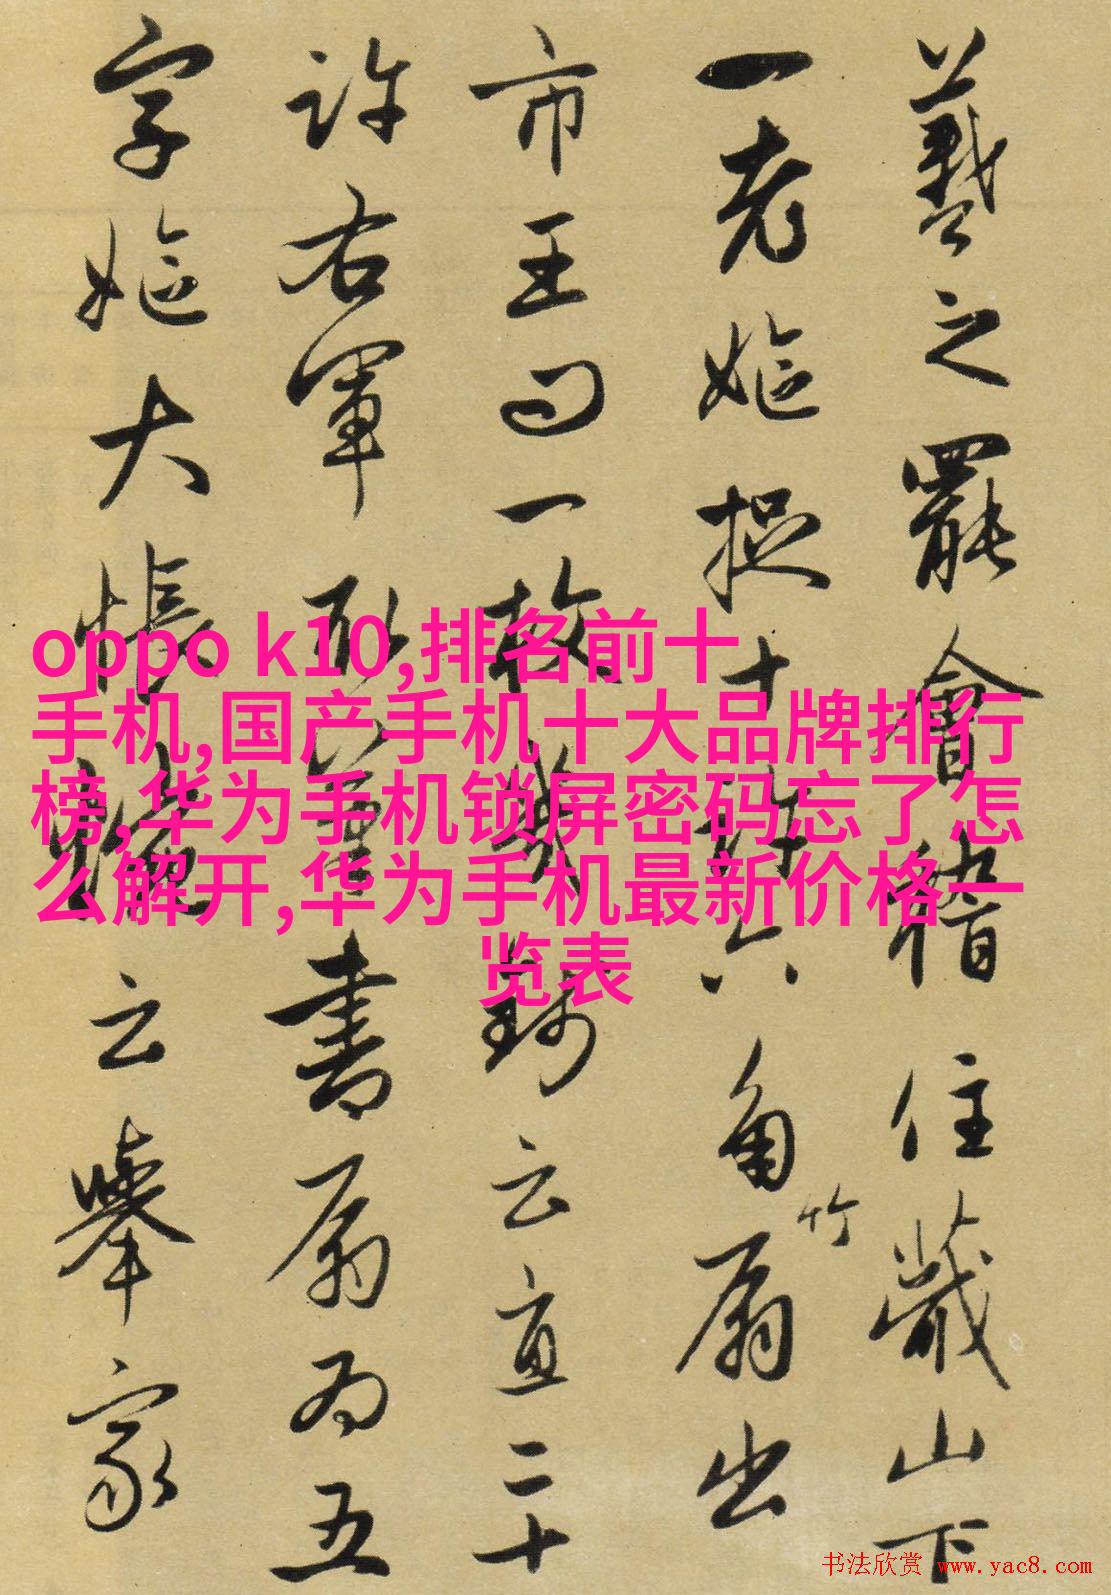 羲之罷會稽住蕺山下
一老嫗捉十許六角竹扇出
市王問一枚幾錢云直二十
許右軍取筆書扇為五
字嫗大悵惋云舉家
oppo k10,排名前十
手机,国产手机十大品牌排行
榜,华为手机锁屏密码忘了怎
么解开,华为手机最新价格一
览表
书法欣赏 www.yac8.com